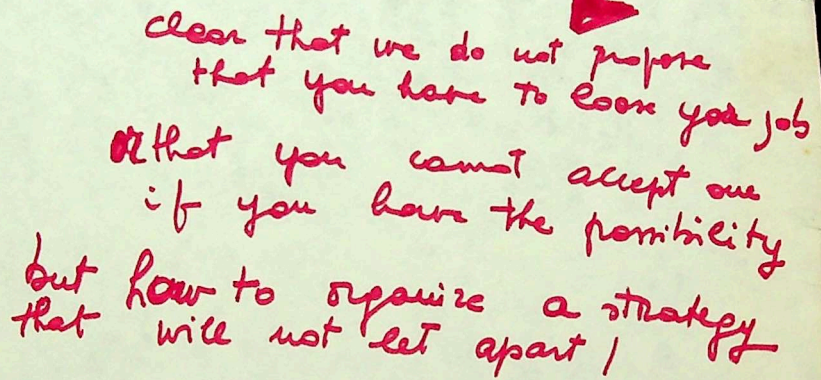 clear that we do not propose
that you have to loose your job
or that you cannot accept one
if you have the possibility
but how to organize a strategy
that will not let apart!